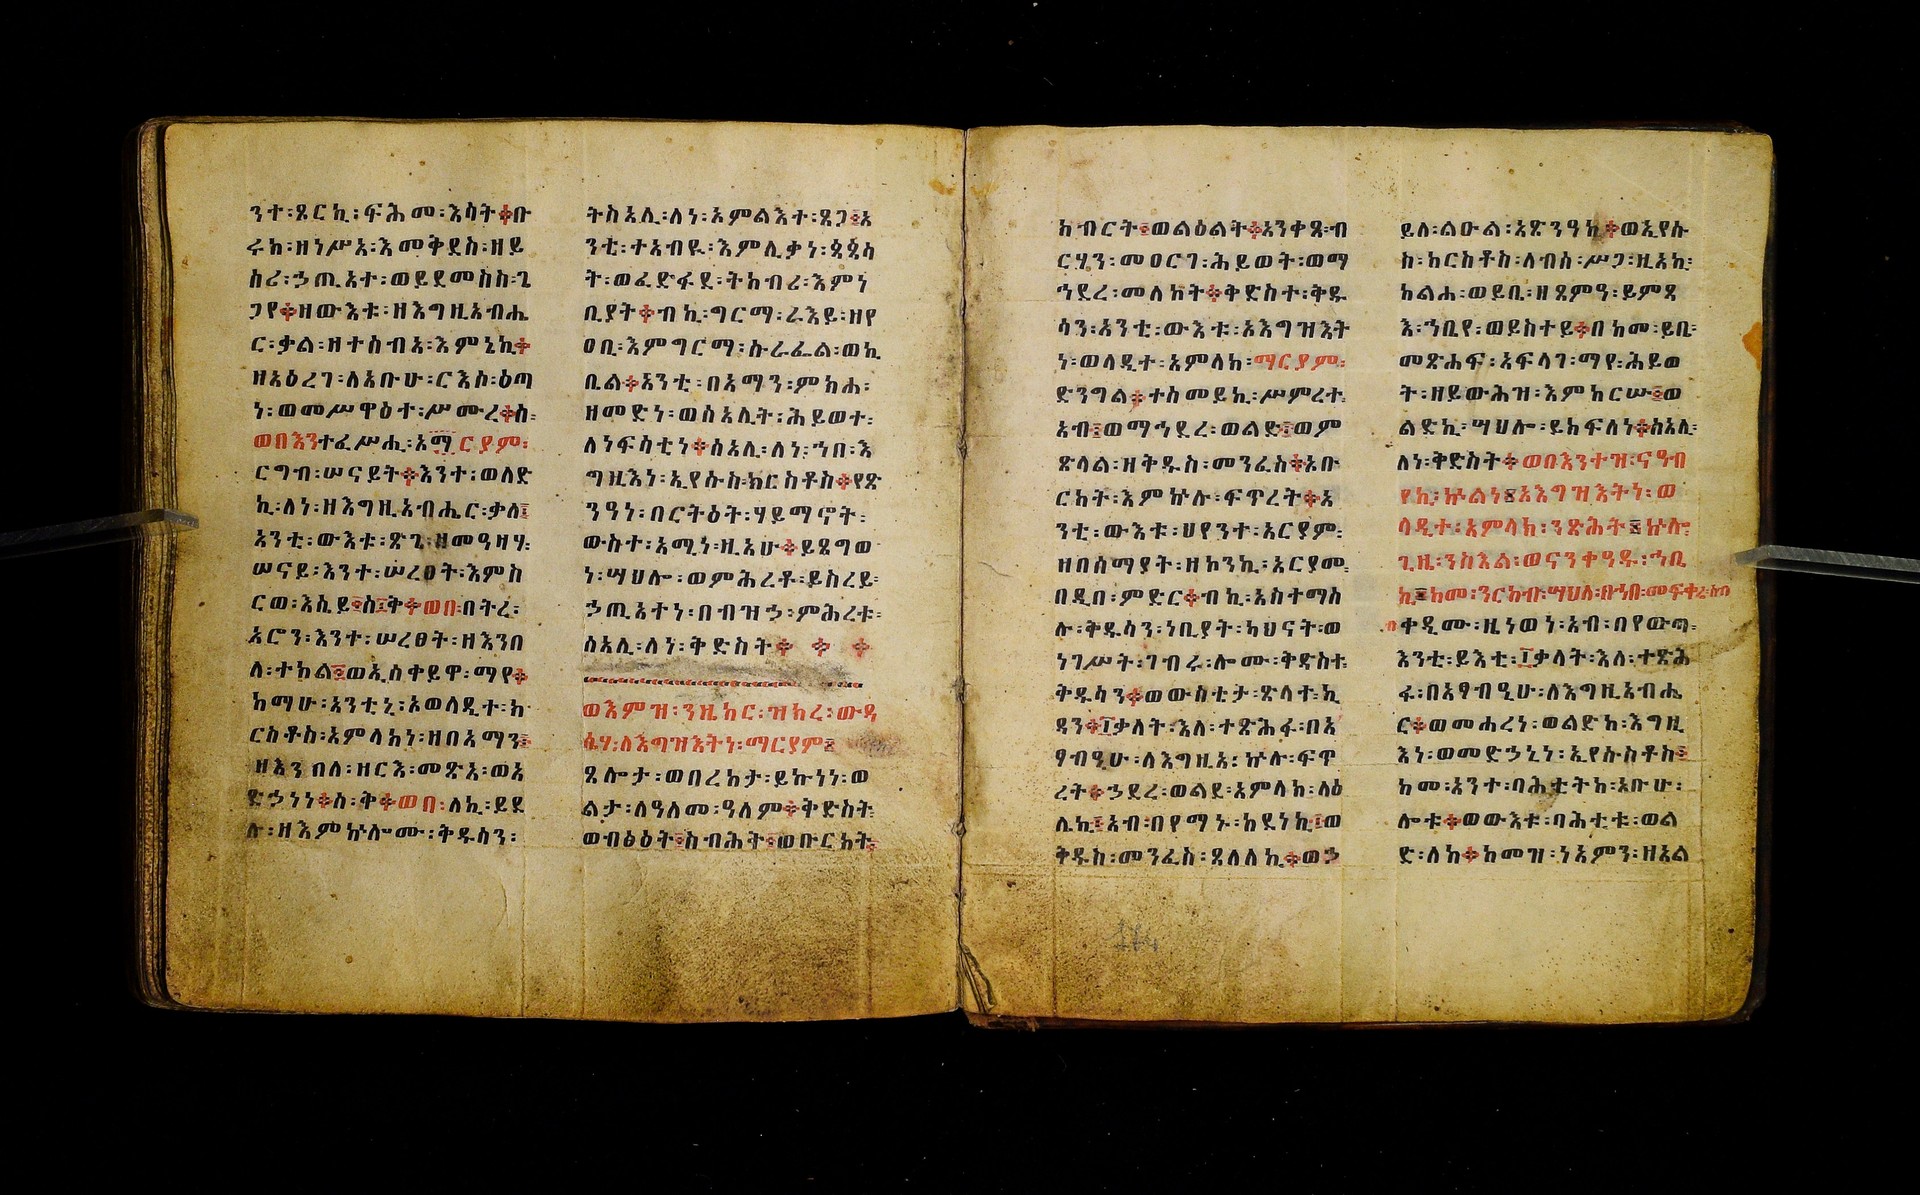 ንተ፡ጾርኪ፡ፍሕመ፡እሳት፨ቡ
ሩክ፡ዘነሥአ፡እመቅደስ፡ዘይ
ሰሪ፡ኃጢአተ፡ወይደመስስ፡ጌ
ጋየ፨ዘውእቱ፡ዘእግዚአብሔ
ር፡ቃል፡ዘተሰብአ፡እምኔኪ፨
ዘአዕረገ፡ለአቡሁ፡ርእሶ፡ዕጣ
ነ፡ወመሥዋዕተ፡ሥሙረ፨ስ፡
ወበእንተፈሥሒ፡አማርያም፡
ርግብ፡ሠናይት፨እንተ፡ወለድ
ኪ፡ለነ፡ዘእግዚአብሔር፡ቃለ፤
አንቲ፡ውእቱ፡ጽጌ፡ዘመዓዛሃ፡
ሠናይ፡እንተ፡ሠረፀት፡እምስ
ርወ፡እሴይ፡ስ፤ቅ፨ወበ፡በትረ፡
አሮን፡እንተ፡ሠረፀት፡ዘእንበ
ለ፡ተከል፡ወኢሰቀይዋ፡ማየ፨
ከማሁ፡አንቲኒ፡አወላዲተ፡ክ
ርስቶስ፡አምላክነ፡ዘበአማን፡
ዘእንበለ፡ዘርእ፡መጽአ፡ወአ
ድኃነነ፨ስ፡ቅ፨ወበ፡ለኪ፡ይደ
ሉ፡ዘእምኵሎሙ፡ቅዱሳን፡
ትስአሊ፡ለነ፡ኦምልእተ፡ጸጋ፡አ
ንቲ፡ተአብዪ፡እምሊቃነ፡ጳጳሳ
ት፡ወፈድፋደ፡ትከብሪ፡እምነ
ቢያት፨ብኪ፡ግርማ፡ራእይ፡ዘየ
ዐቢ፡እምግርማ፡ሱራፌል፡ወኪ
ቤል፨አንቲ፡በአማን፡ምክሐ፡
ዘመድነ፡ወሰአሊት፡ሕይወተ፡
ለነፍሳቲነ፨ሰአሊ፡ለነ፡ኀበ፡እ
ግዚእነ፡ኢየሱስ፡ክርስቶስ፨የጽ
ንዓነ፡በርትዕት፡ሃይማኖት፡
ውስተ፡አሚነ፡ዚአሁ፨ይጸግወ
ነ፡ሣህሎ፡ወምሕረቶ፡ይስረይ፡
ኃጢአተነ፡በብዝኃ፡ምሕረቱ፡
ሰአሊ፡ለነ፡ቅድስት፨ ፨ ፨
ወእምዝ፡ንዜከር፡ዝክረ፡ውዳ
ሴሃ፡ለእግዝእትነ፡ማርያም፡
ጸሎታ፡ወበረከታ፡ይኩነነ፡ወ
ልታ፡ለዓለመ፡ዓለም፨ቅድስት፡
ወብፅዕት፡ስብሕት፡ወቡርክት፡
ክብርት፡ወልዕልት፨አንቀጸ፡ብ
ርሃን፡መዐርገ፡ሕይወት፡ወማ
ኅደረ፡መለኮት፨ቅድስተ፡ቅዱ
ሳን፡አንቲ፡ውእቱ፡እእግዝእት
ነ፡ወላዲተ፡አምላክ፡ማርያም፡
ድንግል፨ተሰመይኪ፡ሥምረተ፡
አብ፤ወማኅደረ፡ወልድ፤ወም
ጽላል፡ዘቅዱስ፡መንፈስ፨አቡ
ርክት፡እምኵሉ፡ፍጥረት፨አ
ንቲ፡ውእቱ፡ህየንተ፡አርያም፡
ዘበሰማያት፡ዘኮንኪ፡አርያመ፡
በዲበ፡ምድር፨ብኪ፡አስተማስ
ሉ፡ቅዱሳን፡ነቢያት፡ካህናት፡ወ
ነገሥት፡ገብሩ፡ሎሙ፡ቅድስተ፡
ቅዱሳን፨ወውስቴታ፡ጽላተ፡ኪ
ዳን፨፲ቃላት፡እለ፡ተጽሕፋ፡በአ
ፃብዒሁ፡ለእግዚአ፡ኵሉ፡ፍጥ
ረት፨ኃደረ፡ወልደ፡አምላክ፡ላዕ
ሌኪ፤አብ፡በየማኑ፡ከደነኪ፤ወ
ቅዱስ፡መንፈስ፡ጸለለኪ፨ወኃ
ይለ፡ልዑል፡አጽንዓኪ፨ወኢየሱ
ስ፡ክርስቶስ፡ለብሰ፡ሥጋ፡ዚአኪ፡
ከልሐ፡ወይቤ፡ዘጸምዓ፡ይምጻ
እ፡ኀቤየ፡ወይስተይ፨በከመ፡ይቤ፡
መጽሐፍ፡አፍላገ፡ማየ፡ሕይወ
ት፡ዘይውሕዝ፡እምከርሡ፡ወ
ልድኪ፡ሣህሎ፡ይክፍለነ፨ሰአሊ፡
ለነ፡ቅድስት፨ወበእንተዝ፡ናዓብ
የኪ፡ኵልነ፡አእግዝእትነ፡ወ
ላዲተ፡አምላክ፡ንጽሕት፡ኵሎ፡
ጊዜ፡ንስእል፡ወናንቀዓዱ፡ኀቤ
ኪ፡ከመ፡ንርከብ፡ሣህለ፡በኀበ፡መፍቀሬ፡ሰብ
ቀዲሙ፡ዜነወነ፡አብ፡በየውጣ፡
እንቲ፡ይእቲ፡፲ቃላት፡እለ፡ተጽሕ
ፋ፡በአፃብዒሁ፡ለእግዚአብሔ
ር፨ወመሐረነ፡ወልድከ፡እግዚ
እነ፡ወመድኃኒነ፡ኢየሱስቶስ፡
ከመ፡አንተ፡ባሕቲትከ፡አቡሁ፡
ሎቱ፨ወውእቱ፡ባሕቲቱ፡ወል
ድ፡ለከ፨ከመዝ፡ነአምን፡ዘአል